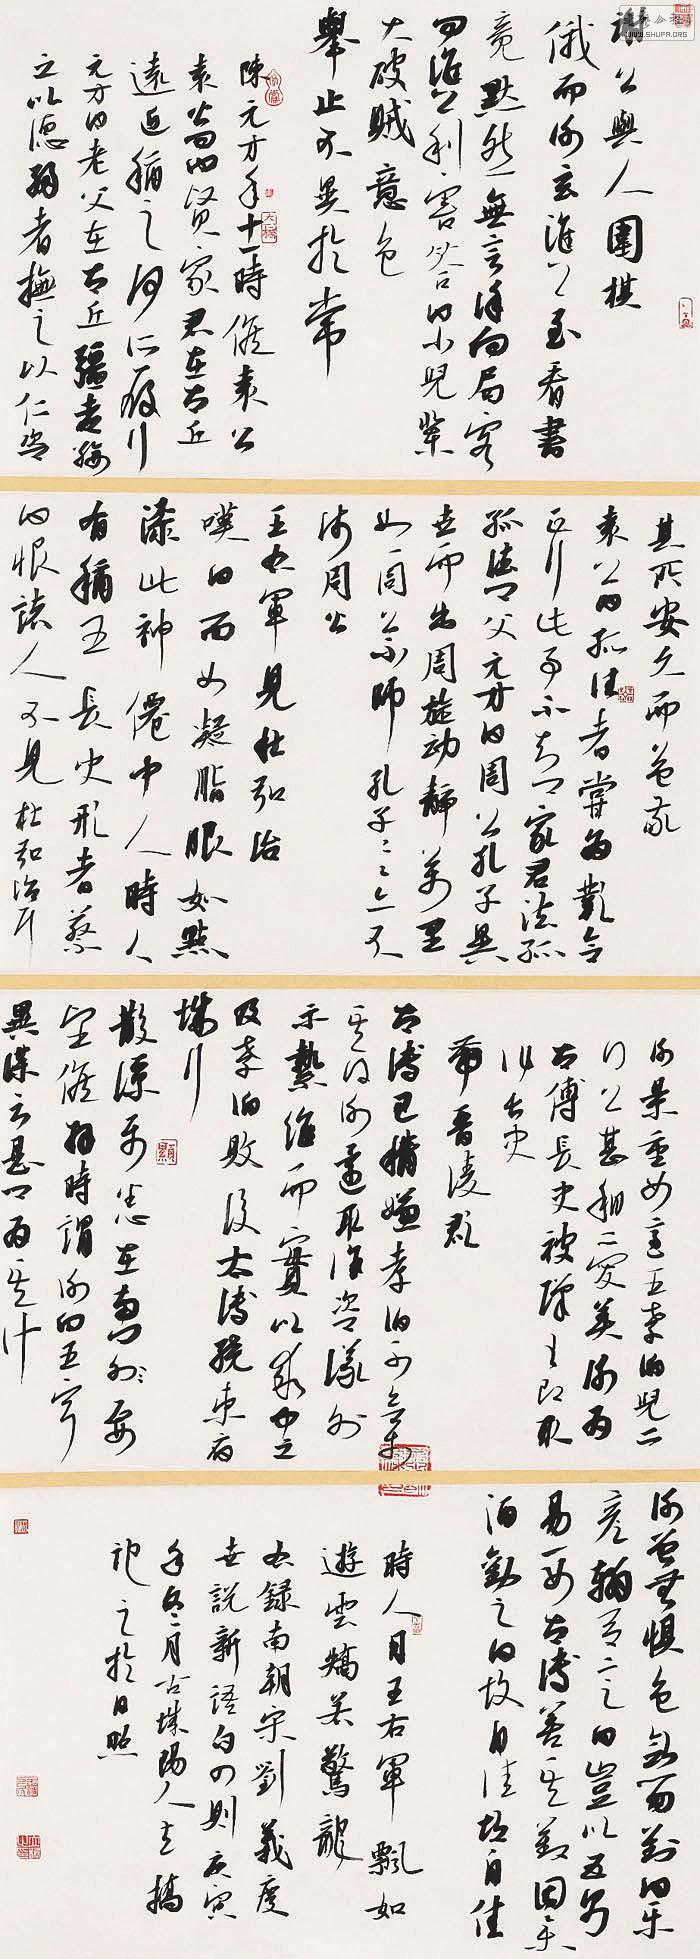 謝公與人圍棋
俄而謝玄淮上書至看書
竟默然無言徐向局客
問淮上利害答曰小兒輩
大破賊意色
舉止不異於常
陳元方年十一時候袁公
袁公問曰賢家君在太丘
遠近稱之何所履行
元方曰老父在太丘彊者綏
之以德弱者撫之以仁恣
其所安久而益敬
袁公曰孤往者嘗為鄴令
正行此事不知卿家君法孤
孤法卿父元方曰周公孔子異
世而出周旋動靜萬里
如一周公不師孔子孔子亦不
師周公
王右軍見杜弘治
嘆曰面如凝脂眼如點
漆此神僊中人時人
有稱王長史形者蔡
公曰恨諸人不見杜弘治耳
謝景重女適王孝伯兒二
門公甚相愛美謝為
太傅長史被彈王即取
作長史
帶晉陵郡
太傅已構嫌孝伯不欲使
其得謝還取作咨議外
示縶維而實以乖間之
及孝伯敗後太傅繞東府
城行
散僚屬悉在南門外要
望候拜時謂謝曰王甯
異謀云是卿為其計
謝曾無懼色斂笏對曰樂
彥輔有言豈以五男
易一女太傅善其對因舉
酒勸之曰故自佳故自佳
時人目王右軍飄如
遊雲矯若驚龍
右錄南朝宋劉義慶
世說新語句四則庚寅
年冬月古城陽人
記之於日照
WWW.SHUFA.ORG